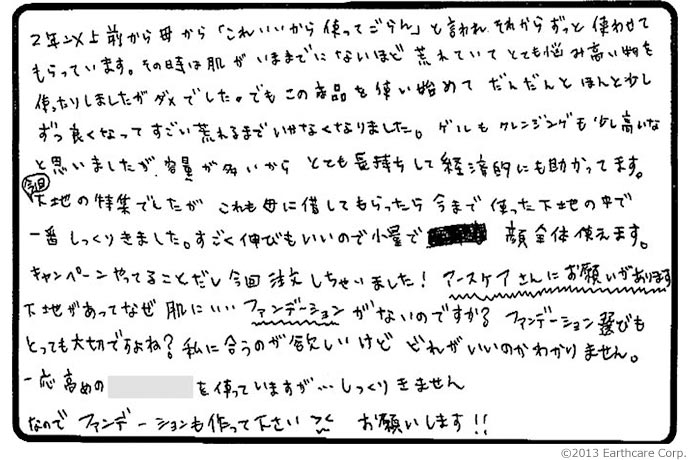 2年以上前から母から「これいいから使ってごらん」と言われ それからずっと使わせて
もらっています。その時は肌がいままでにないほど荒れていてとても悩み高い物を
使ったりしましたがダメでした。でもこの商品を使い始めてだんだんとほんと少し
ずつ良くなってすごい荒れるまでいかなくなりました。ゲルもクレンジングも少し高いな
と思いましたが、容量が多いからとても長持ちして経済的にも助かってます。
今回
下地の特集でしたが これも母に借してもらったら 今まで使った下地の中で
一番しっくりきました。すごく伸びもいいので少量で 顔全体使えます。
キャンペーンやってることだし今回注文しちゃいました! アースケアさんにお願いがあります
下地があってなぜ肌にいいファンデーションがないのですか? ファンデーション選びも
とっても大切ですよね? 私に合うのが欲しいけどどれがいいのかわかりません。
一応高めの を使っていますが…しっくりきません
なのでファンデーションも作って下さい お願いします!!
©2013 Earthcare Corp.